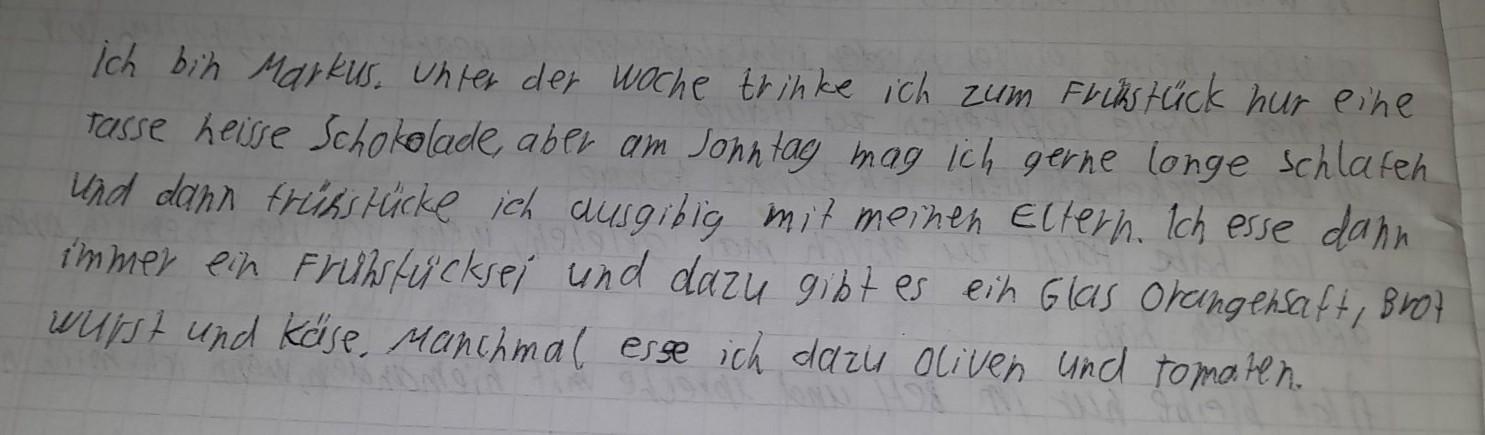 ich bin Markus. Unter der woche trinke ich zum Frühstück nur eine
Tasse heisse Schokolade, aber am Sonntag mag ich gerne longe schlafen
und dann frühstücke ich ausgibig mit meinen Eltern. Ich esse dann
immer ein Frühstücksei und dazu gibt es ein Glas Orangensaft, Brot
wurst und Käse. Manchmal esse ich dazu Oliven und Tomaten.